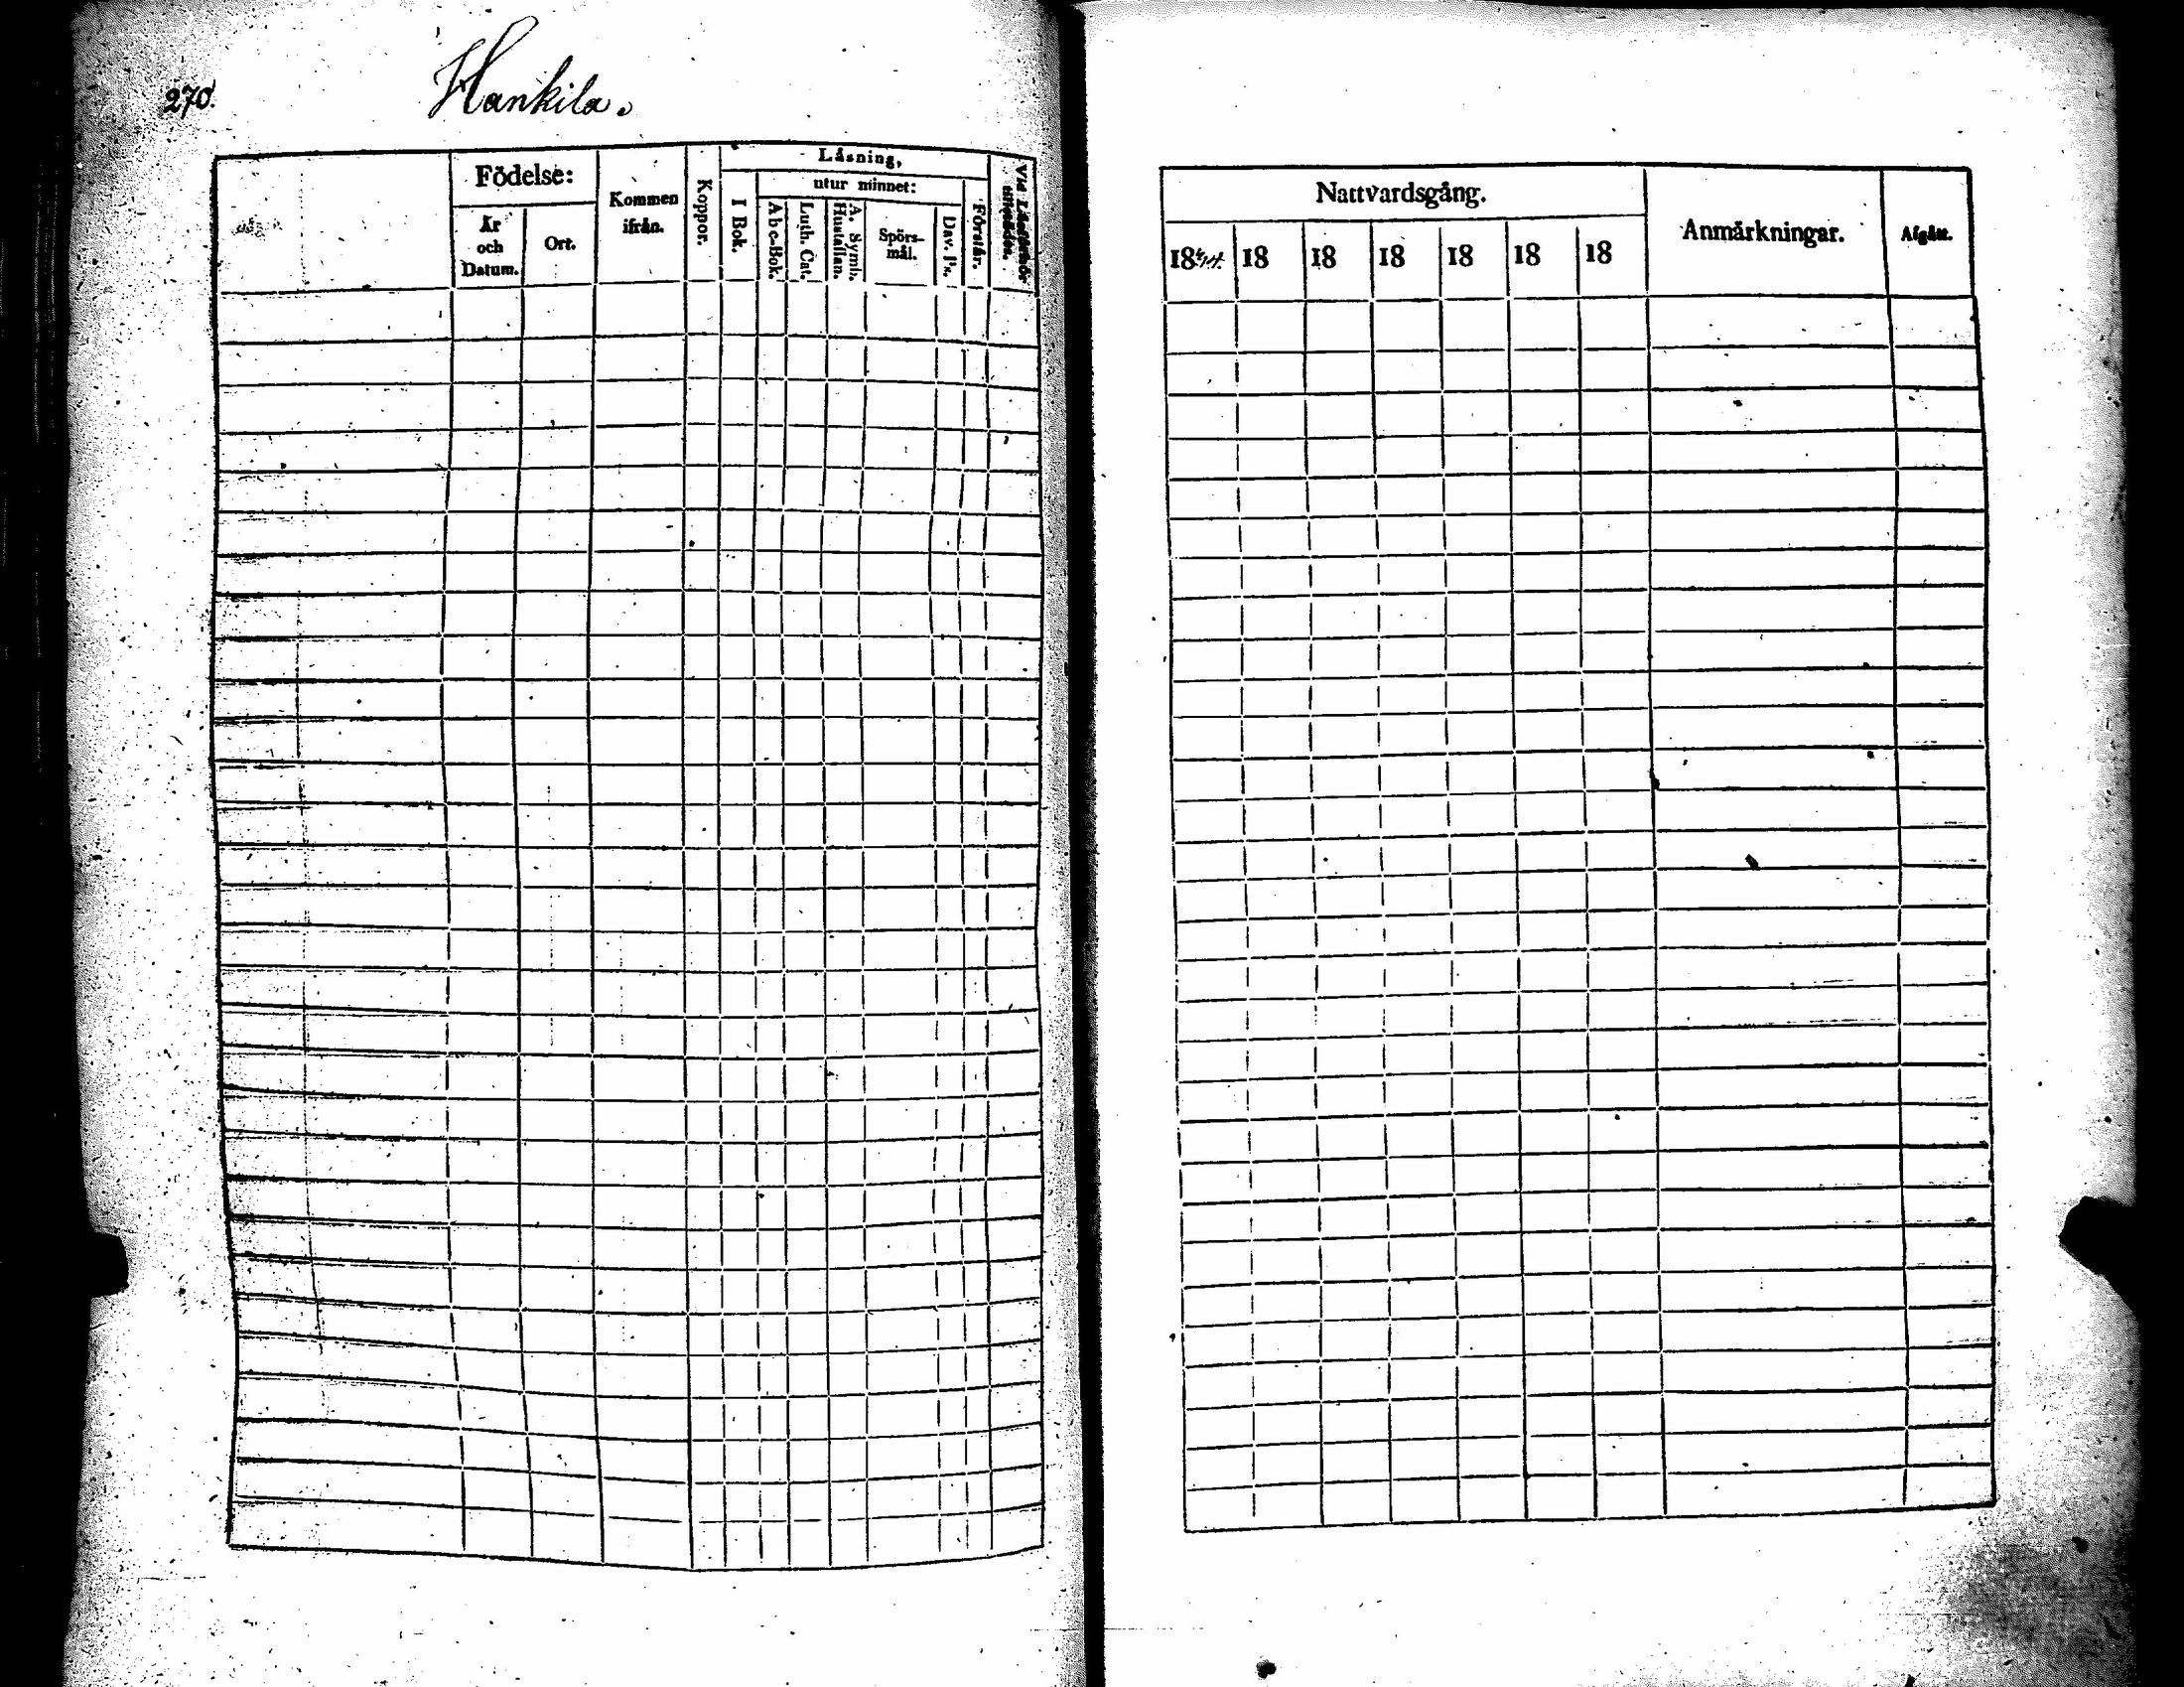 270.
Hankila.
Födelse:
År
och
Datum.
Ort.
Kommen
ifrån.
Koppor.
Låsning,
I Bok.
utur minnet:
Abc-Bok.
Luth. Cat.
A. Symb.
Hustaflan.
Spörs-
mål.
Dav. Ps.
Förstår.
Vid Läsförhör
Nattvardsgång.
18
18
18
18
18
18
18
Anmärkningar.
Afgått.